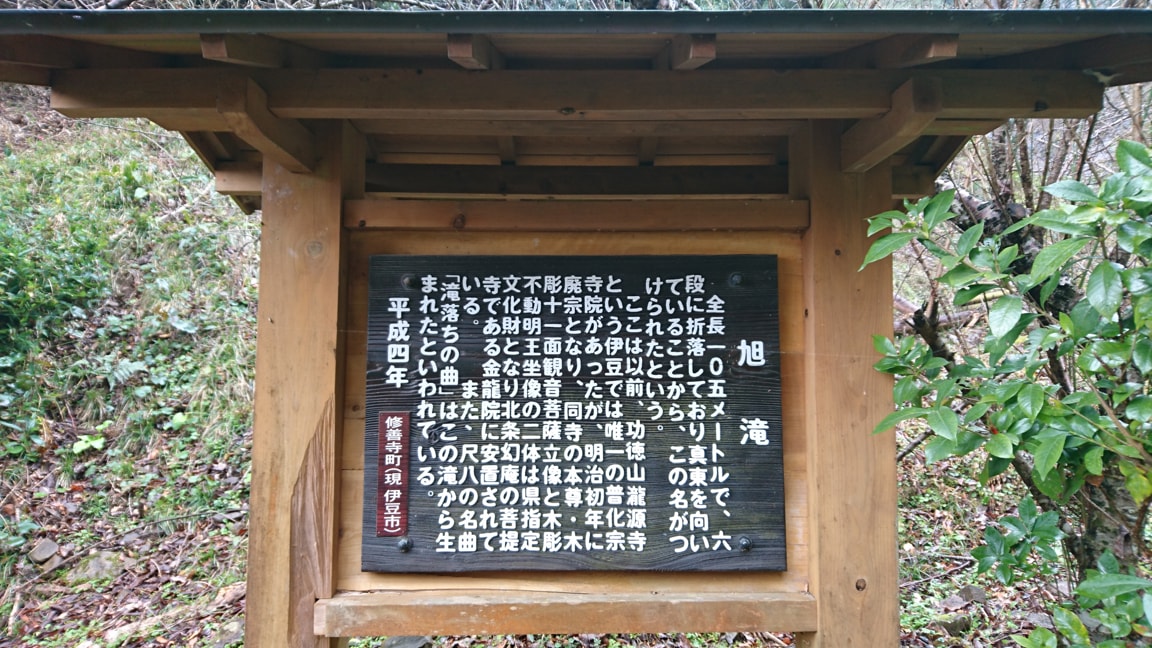 旭滝
全長一〇五メートルで、六
段に折落しており真東を向い
ていることから、この名がつ
けられたという。
ここは以前、功徳山瀧源寺
という伊豆では唯一の普化宗
寺院があったが、明治初年に
廃宗となり、同寺の本尊・木
彫十一面観音菩薩立像と木彫
不動明王坐像の二体は県指定
文化財となり北条幻庵の菩提
寺である金龍院に安置されて
いる。また、尺八の名曲
「滝落ちの曲」はこの滝から生
まれたといわれている。
平成四年
修善寺町(現 伊豆市)